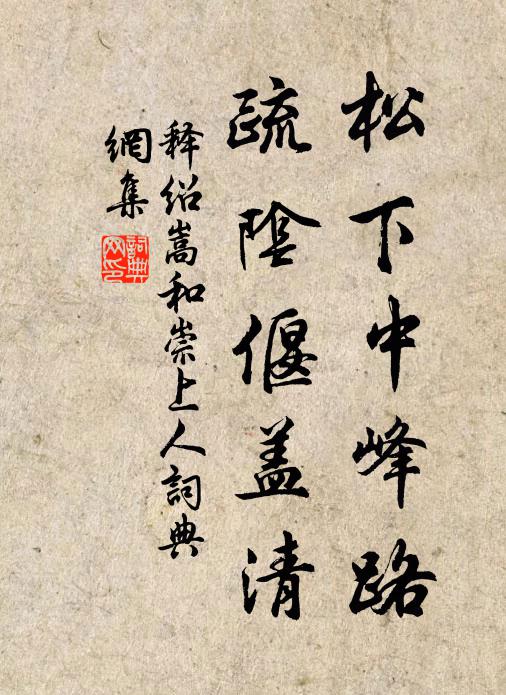 松下中峰路
疏陰偃盖清
释绍嵩和崇上人詞典
網集
詞典
网印